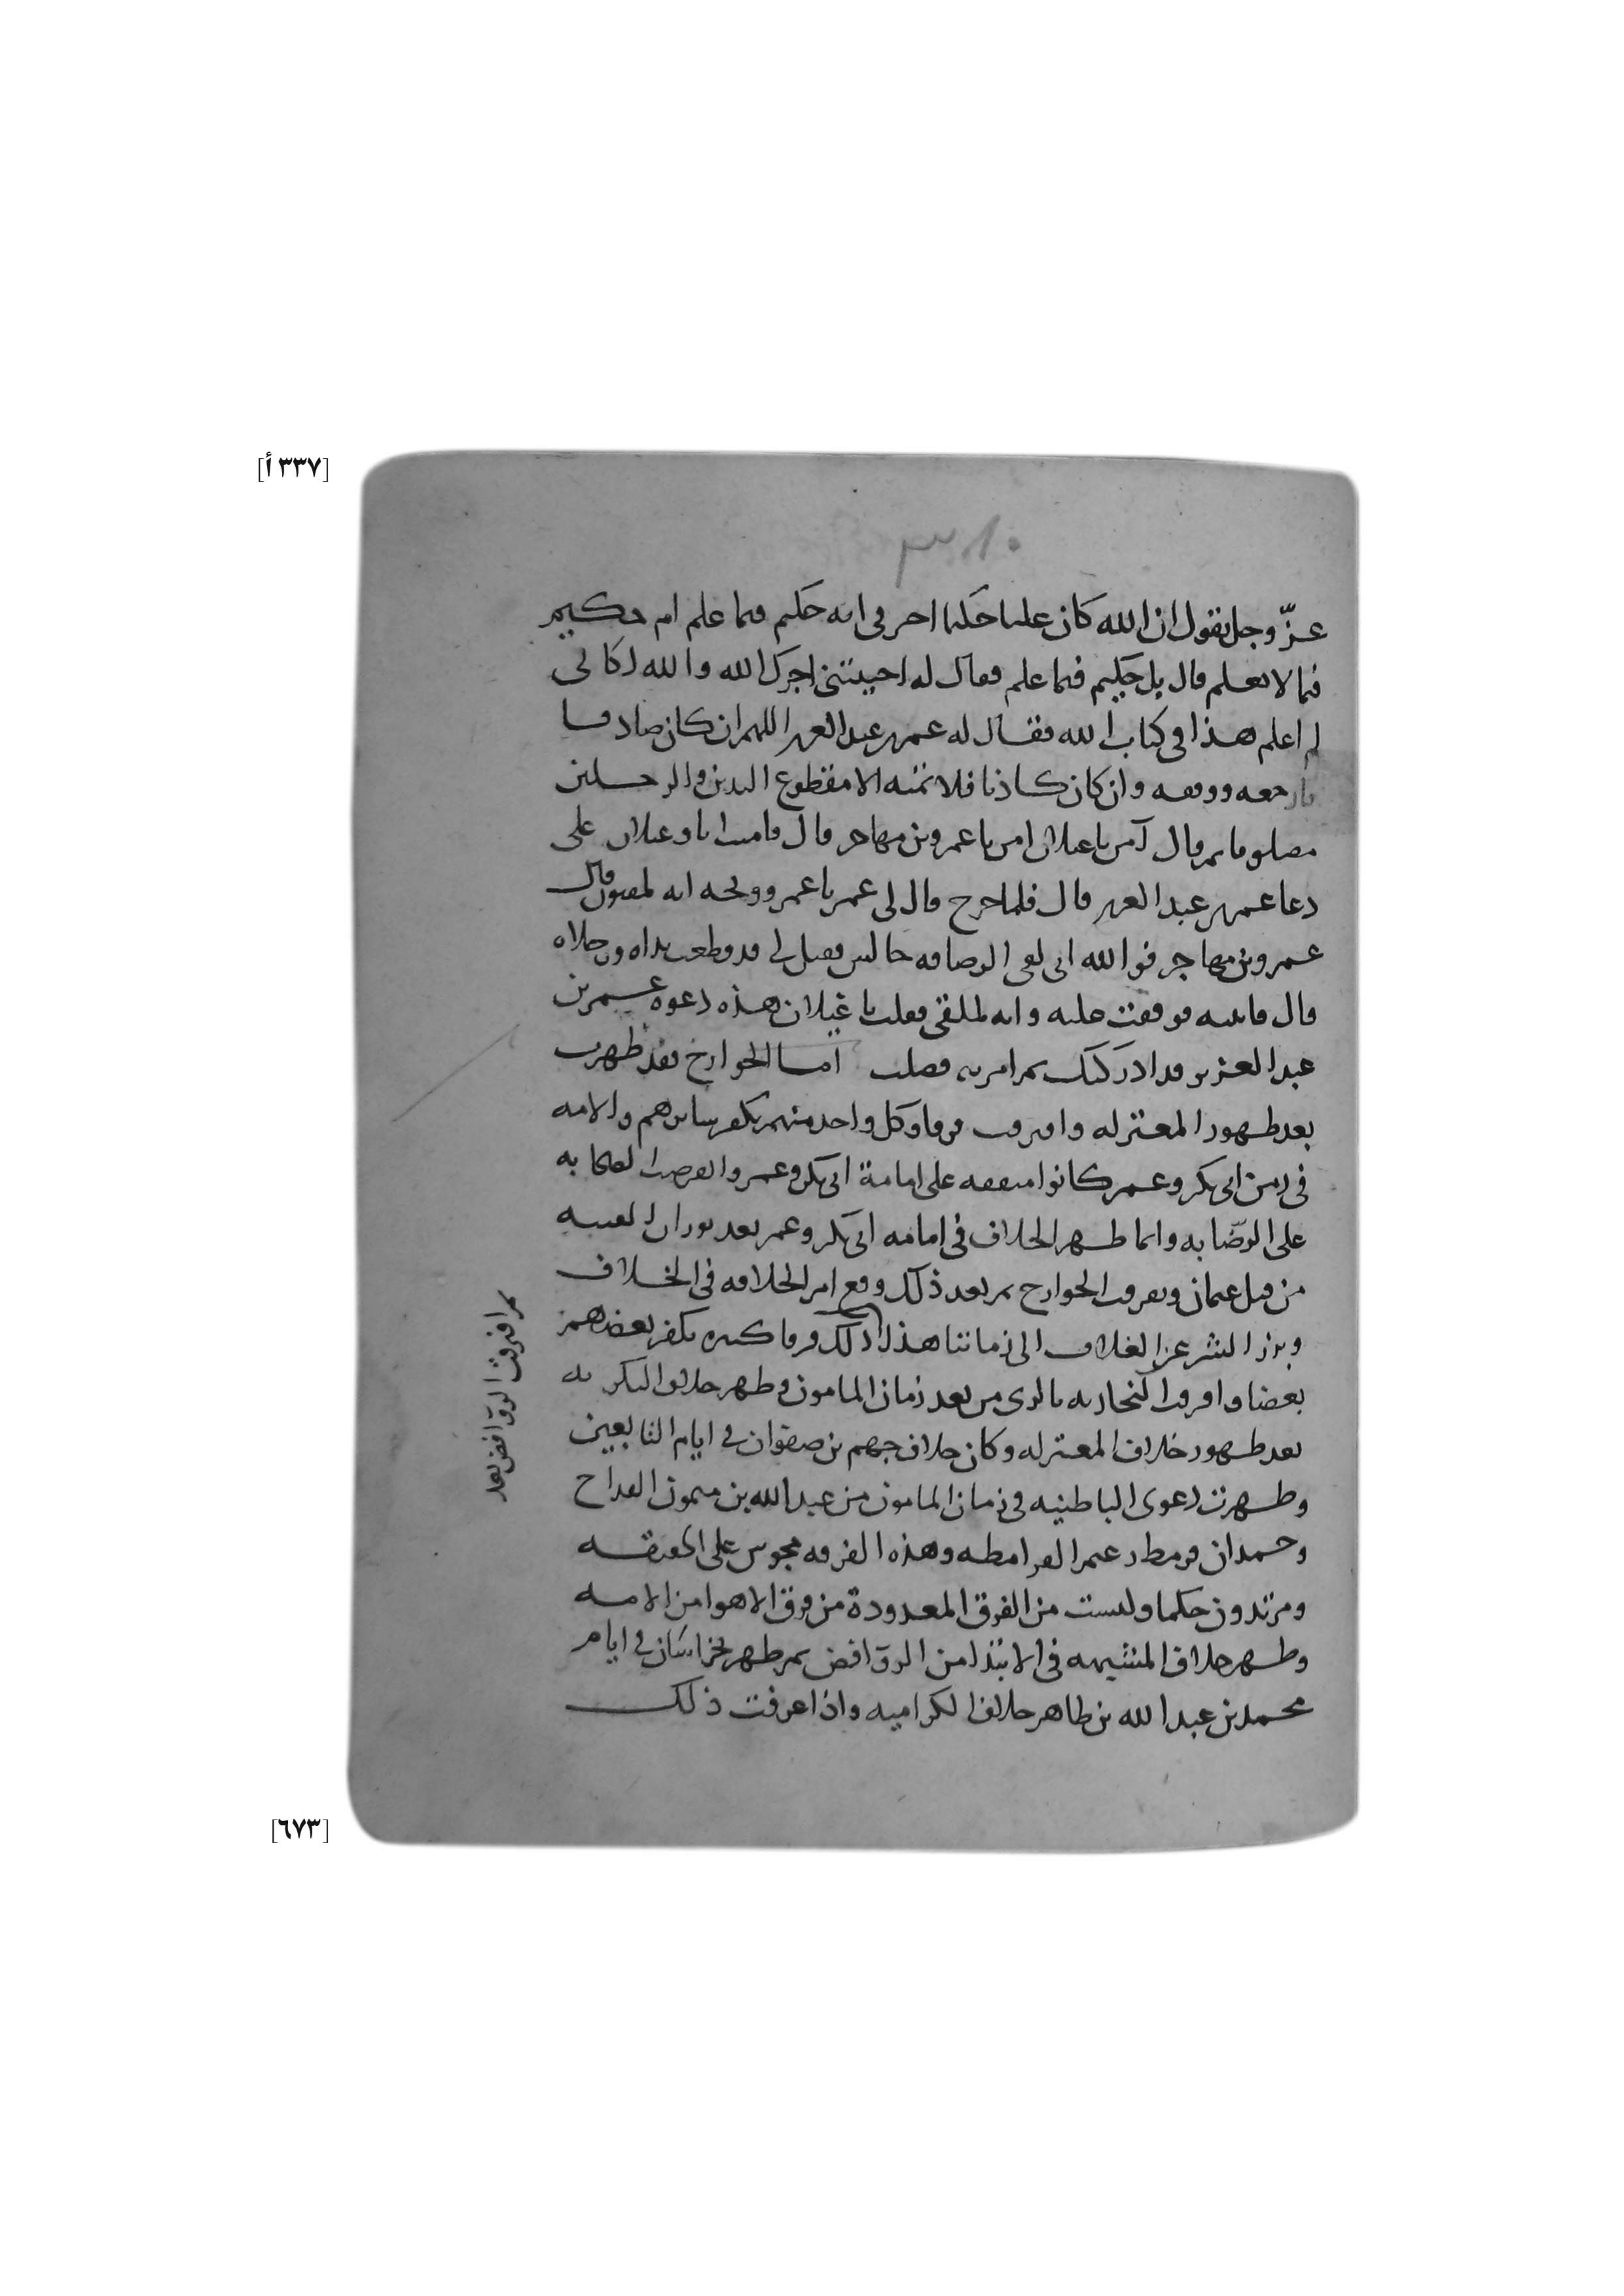 [٣٣٧ أ]
عزّ وجل يقول ان الله كان عليما حكيما اخبرني انه حكيم فيما علم ام حكيم
فيما لا يعلم قال بل حكيم فيما علم فقال له احييتني اجرك الله والله لكاني
لم اعلم هذا في كتاب الله فقال له عمر بن عبد العزيز اللهم ان كان صادقا
فارجعه ووفقه وان كان كاذبا فلا تمته الا مقطوع اليدين والرجلين
مصلوبا ثم قال آمن يا غيلان امن يا عمرو بن مهاجر قال فامنت انا وغيلان على
دعا عمر بن عبد العزيز قال فلما خرج قال لي عمر يا عمرو ويحه انه لمفتون قال
عمرو بن مهاجر فوالله اني لفي الرصافه جالس فقيل لي قد قطعت يداه ورجلاه
قال فاتيته فوقفت عليه وانه لملقى فقلت يا غيلان هذه دعوه عمر بن
عبد العزيز قد ادركتك ثم امر به فصلب اما الخوارج فقد ظهرت
بعد ظهور المعتزله وافترقت فرقا وكل واحد منهم يكفر سائرهم والامه
في زمن ابي بكر وعمر كانوا متفقه على امامة ابي بكر وعمر وانقرض الصحابه
على الرضا به وانما ظهر الخلاف في امامه ابي بكر وعمر بعد ثوران الفتنه
من قبل عثمان وتفرقت الخوارج ثم بعد ذلك وقع امر الخلافه في الخلاف
الى زماننا هذا فرقا كثيره يكفر بعضهم
بعضا وافترقت النجاريه بالري من بعد زمان المامون وظهر خلاف البكريه
بعد ظهور خلاف المعتزله وكان خلاف جهم بن صفوان في ايام التابعين
وظهرت دعوى الباطنيه في زمان المامون من عبد الله بن ميمون القداح
وحمدان قرمط زعيم القرامطه وهذه الفرقه مجوس على الحقيقه
ومرتدون حكما وليست من الفرق المعدودة من فرق الاهوا من الامه
وظهر خلاف المشبهه في الابتدا من الروافض ثم ظهر بخراسان في ايام
محمد بن عبد الله بن طاهر خلاف الكراميه واذا عرفت ذلك
ثم افترقت الروافض بعد
[٦٧٣]